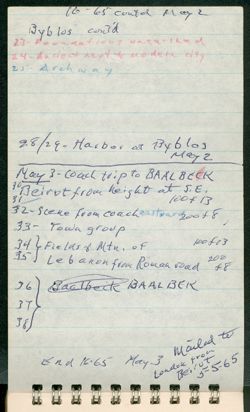 16-65 cont'd May 2
Byblos cont'd
23- Foundations unearthed
24- Buried next to modern city
25- Archway
28/29- Harbor at Byblos
May 2
May 3- Coach trip to BAALBECK
30 Beirut from height at S.E.
31 100 f 13
32- Scene from coach eastward 200 f 8
33- Town group
34 } Fields & Mtn. of 100 f 13
35 Lebanon from Roman road 200 f 8
36 } Baalbeck BAALBCK
37
38
End 16-65 May 3 Mailed to
London from
Beirut
5-5-65